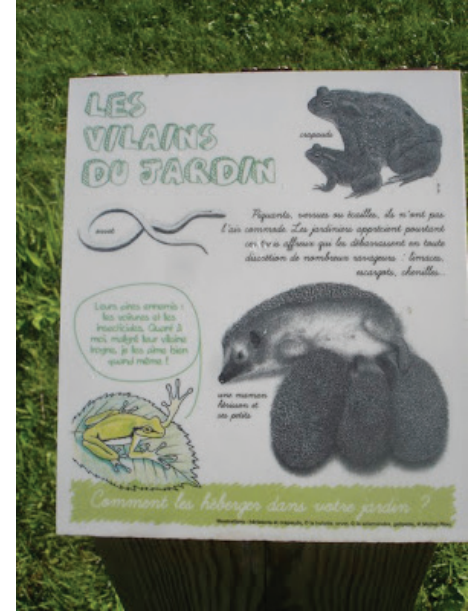 LES
VILAINS
DU JARDIN
crapauds
orvet
Piquants, verrues ou écailles, ils n'ont pas
l'air commode. Les jardiniers apprécient pourtant
ces affreux qui les débarrassent en toute
discrétion de nombreux ravageurs : limaces,
escargots, chenilles...
Leurs pires ennemis :
les voitures et les
insecticides. Quant à
moi, malgré leur vilaine
trogne, je les aime bien
quand même !
une maman
hérisson et
ses petits
Comment les héberger dans votre jardin ?